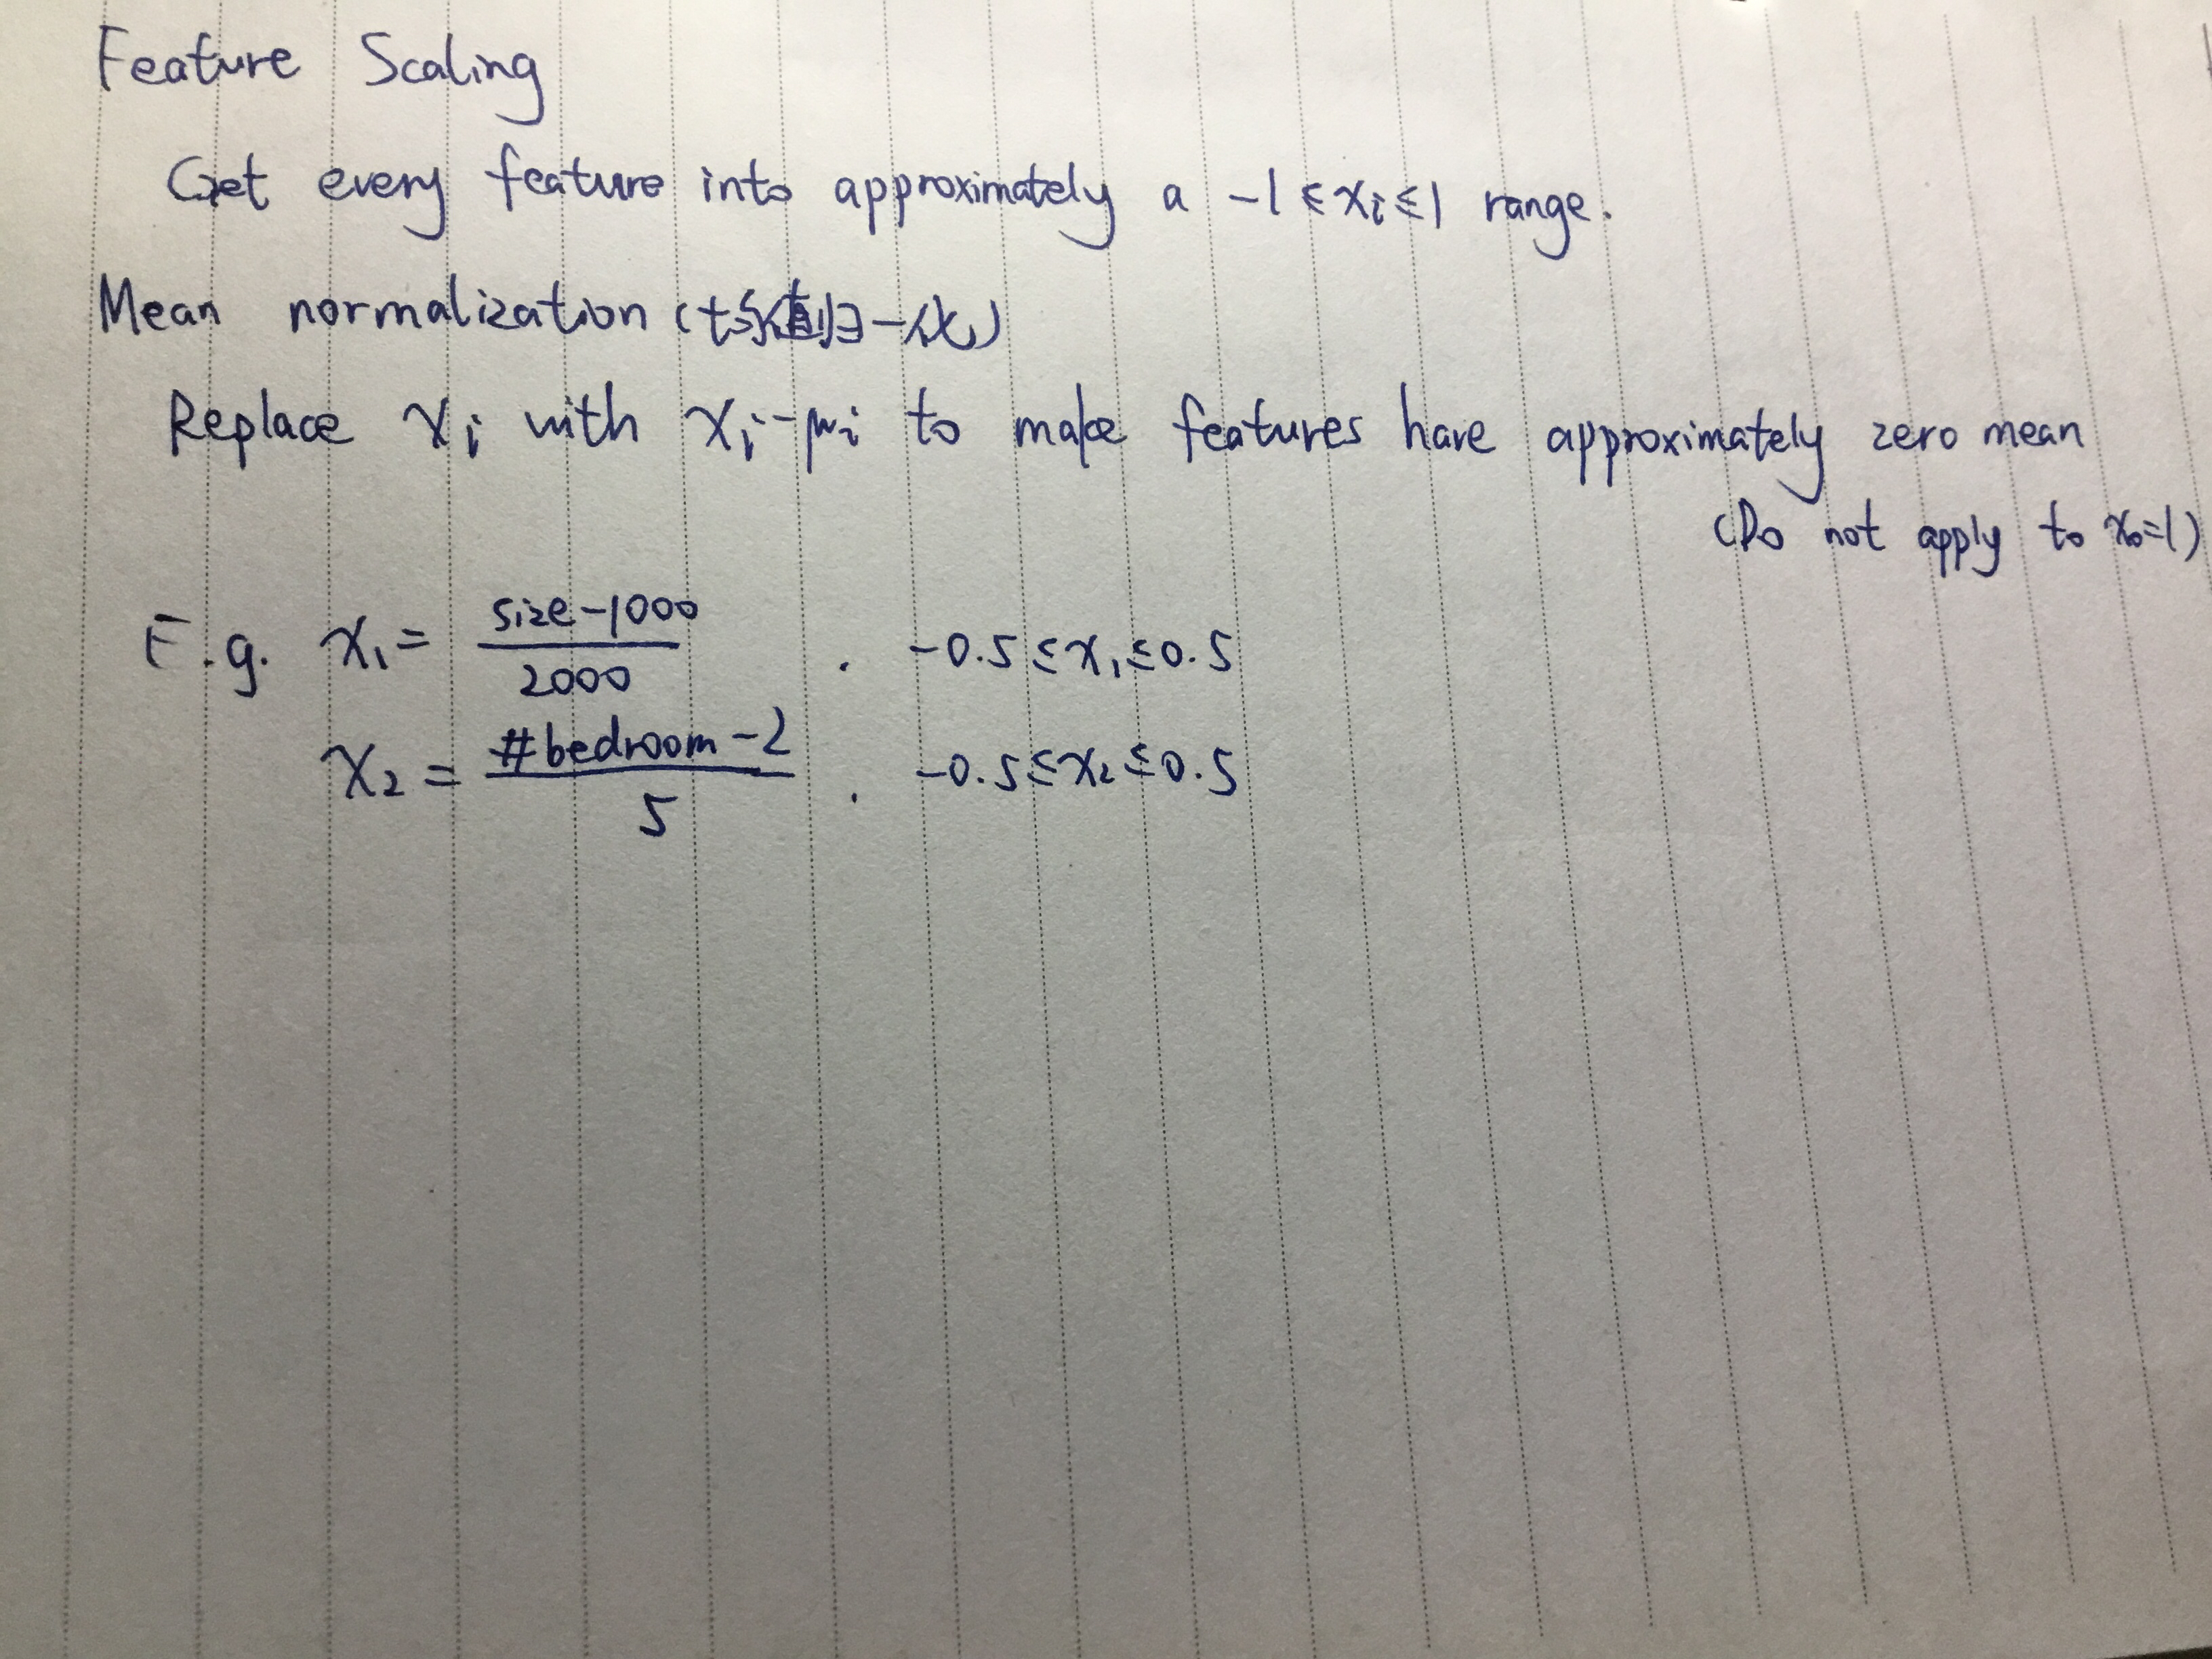 Feature Scaling
Get every feature into approximately a -1 ≤ xi ≤ 1 range.
Mean normalization (均值归一化)
Replace xi with xi-μi to make features have approximately zero mean
(Do not apply to x0=1)
E.g. x1 = size-1000 / 2000 . -0.5 ≤ x1 ≤ 0.5
x2 = #bedroom-2 / 5 . -0.5 ≤ x2 ≤ 0.5